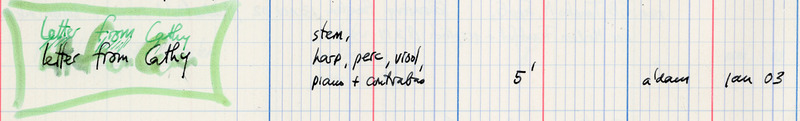 Letter from Cathy
letter from Cathy
stem,
harp, perc, viool,
piano + contrabas
5'
a'dam
jan 03